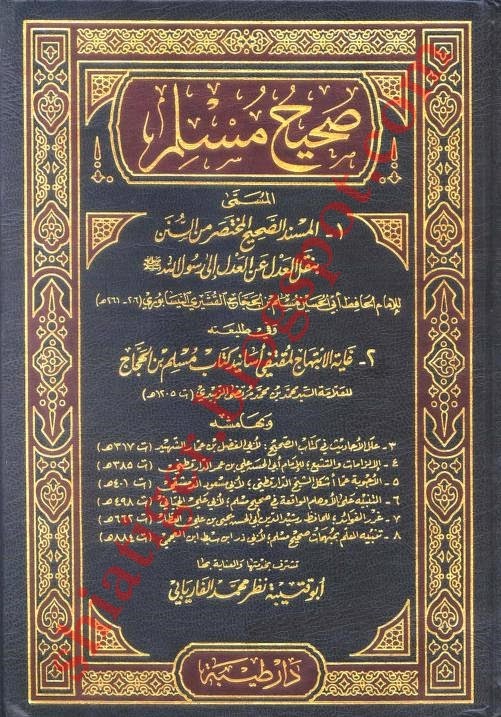 صحيح مسلم
المسمى
١- المسند الصحيح المختصر من السنن
بنقل العدل عن العدل إلى رسول الله ﷺ
للإمام الحافظ أبي الحسين مسلم بن الحجاج القشيري النيسابوري (٢٠٦-٢٦١هـ)
وفي طليعته
٢- غاية الابتهاج لمقتفي أسانيد كتاب مسلم بن الحجاج
للعلامة السيد محمد بن محمد مرتضى الزبيدي (ت ١٢٠٥هـ)
وبهامشه
٣- علل الأحاديث في كتاب الصحيح: لأبي الفضل بن عمار الشهيد (ت ٣١٧هـ)
٤- الإلزامات والتتبع: للإمام أبي الحسن علي بن عمر الدارقطني (ت ٣٨٥هـ)
٥- الأجوبة عما أشكل الشيخ الدارقطني: لأبي مسعود الدمشقي (ت ٤٠١هـ)
٦- التنبيه على الأوهام الواقعة في صحيح مسلم: لأبي علي الجياني (ت ٤٩٨هـ)
٧- غرر الفوائد: للحافظ رشيد الدين أبي الحسين يحيى بن علي العطار (ت ٦٦٢هـ)
٨- تنبيه المعلم بمبهمات صحيح مسلم: لأبي ذر ابن سبط ابن العجمي (ت ٨٨٤هـ)
تشرف بخدمتها والعناية بها
أبو قتيبة نظر محمد الفاريابي
دار طيبة
ghiatog.blogspot.com